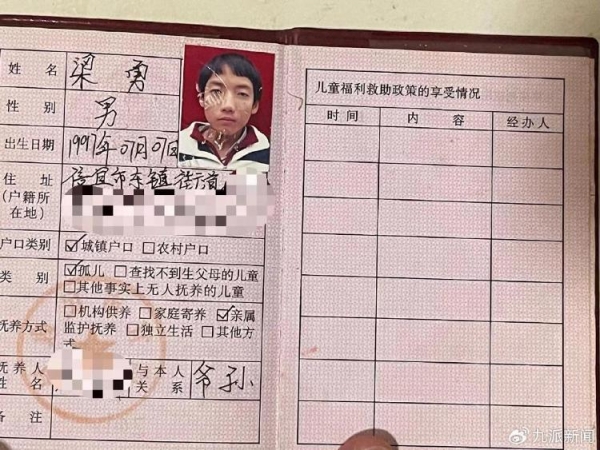 姓 名 梁 勇
性 别 男
出生日期 1997年07月07日
住 址 信宜市东镇街道
(户籍所
在地)
户口类别 ☑城镇户口 □农村户口
类 别 ☑孤儿 □查找不到生父母的儿童
□其他事实上无人抚养的儿童
抚养方式 □机构供养 □家庭寄养 ☑亲属
监护抚养 □独立生活 □其他方
式
抚养人 与本人
姓 名 关 系 爷孙
备 注
儿童福利救助政策的享受情况
时 间 内 容 经办人
九派新闻